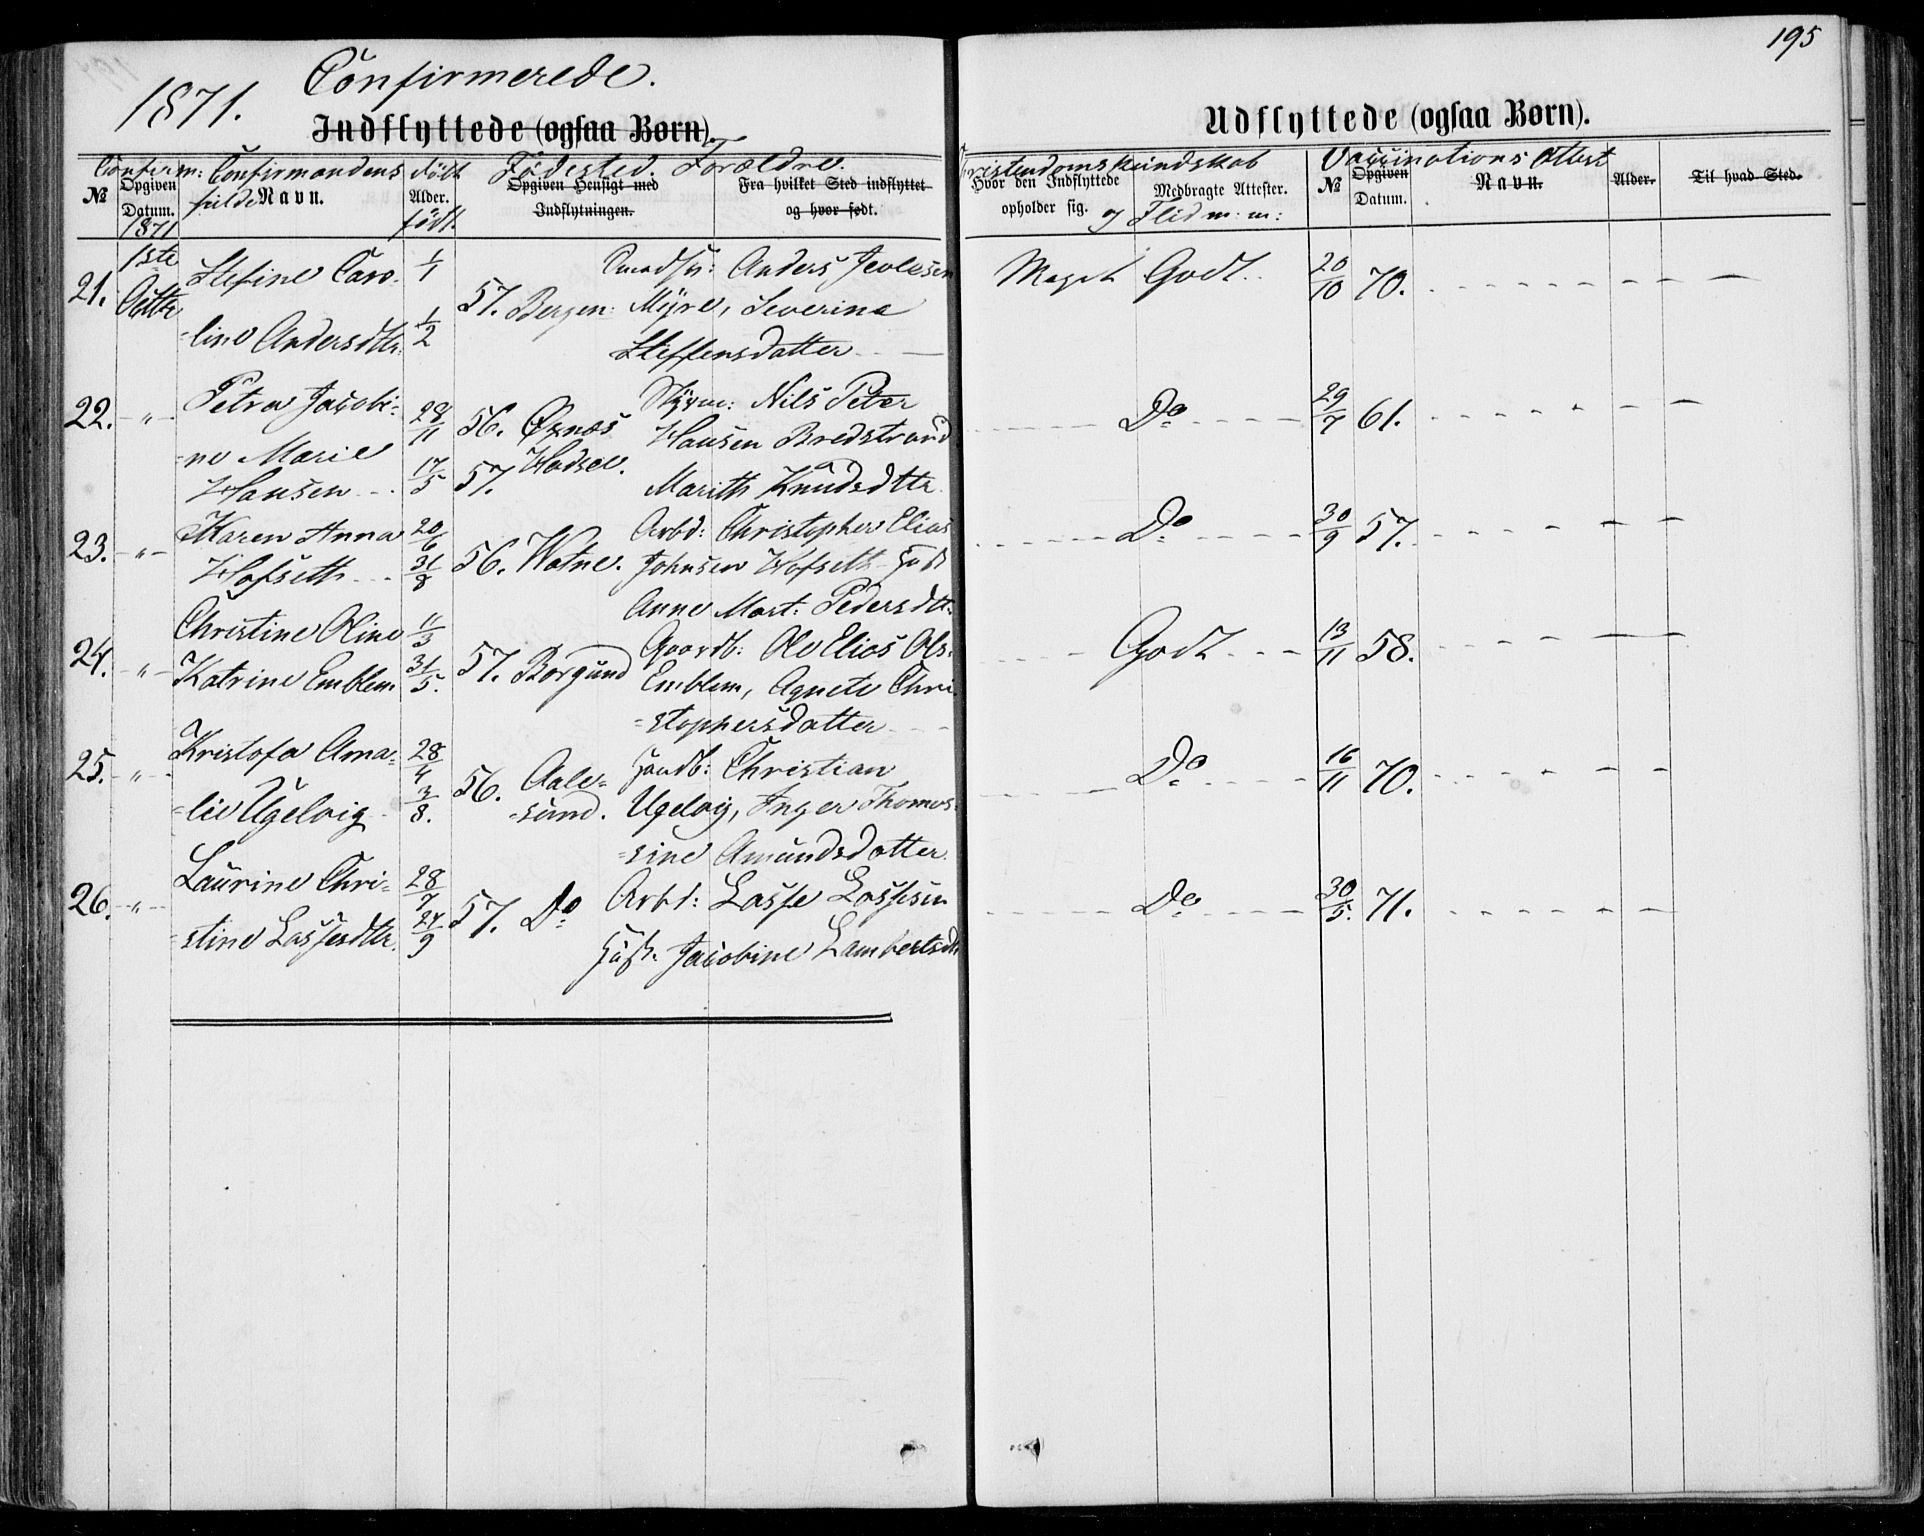 195
1871.
Confirmerede.
Indflyttede (ogsaa Børn).
Udflyttede (ogsaa Børn).
Confirm: Confirmandens født Födested. Forældre.
Christendomskundskab
Vaccinations Attest
№ Opgiven Datum. fulde Navn. Alder. Opgiven Hensigt med Indflytningen. Fra hvilket Sted indflyttet og hvor født.
Hvor den Indflyttede opholder sig. Medbragte Attester. № Opgiven Datum. Navn. Alder. Til hvad Sted.
1871 födt. og Flid m: m:
1ste Stefine Caro- 1/1 Anders
21. Octbr 57. Bergen: Myre, Severina Meget Godt. 20/10 70.
-line Andersdtr. 1/2 Steffensdatter
Petra Jacobi= Nils Peter
22. " 28/11 56. Øxnæs Hansen Bredstrand Do 29/7 61.
-ne Marie 17/5 57. Hadsel.
Hansen Marith Knudsdtr
Karen Anna 20/6 Arbd: Christopher Elias
23. " 56. Vatne. Johnsen Hofseth Do 30/9 57.
Hofseth 31/8
Anne Mart: Pedersdtr.
Christine Oline 11/3 Gaardb: Ole Elias Ols.
24. " 57. Borgund Godt 13/11 58.
Katrine Emblem 31/5. Emblem, Agnete Chri
=stophersdatter
Kristofa Ama= 28/4 Handb: Christian
25. " 56. Aale= Do 16/11 70.
-lie Ugelvig 3/8. =sund. Ugelvig, Inger Thomas=
=sine Amundsdatter
Laurine Chri- 28/7 Arbd: Lasse Lassesen
26. " 57. Do Do 30/5. 71.
=stine Lassesdtr. 24/9
Jacobine Lambertsdtr